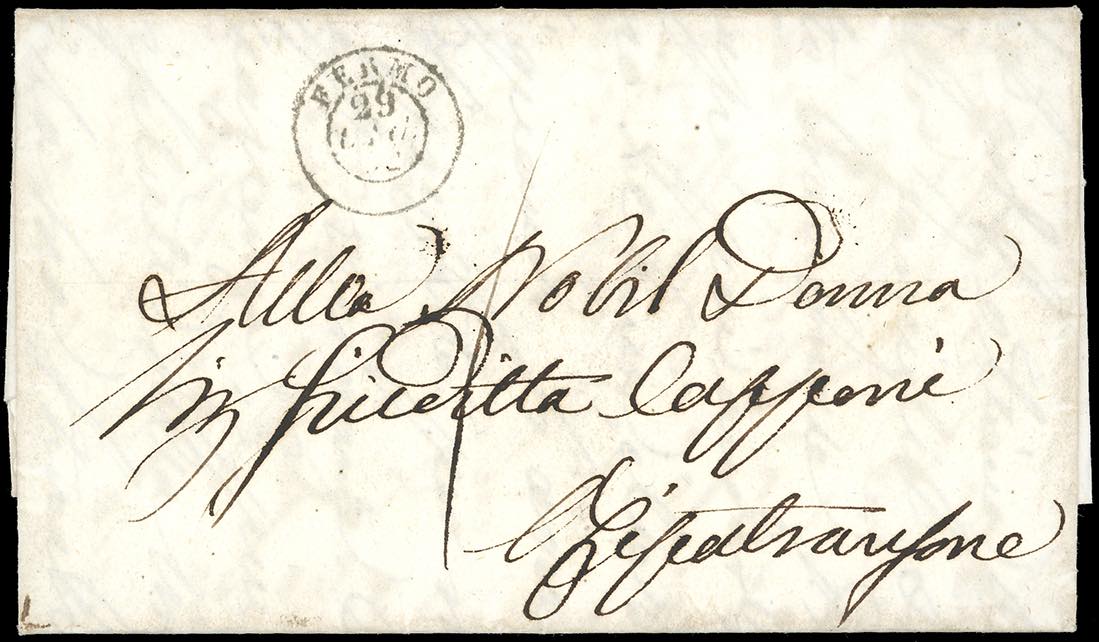 FERMO
29
Alla Nobil Donna
Giuditta Capponi
Ripatransone